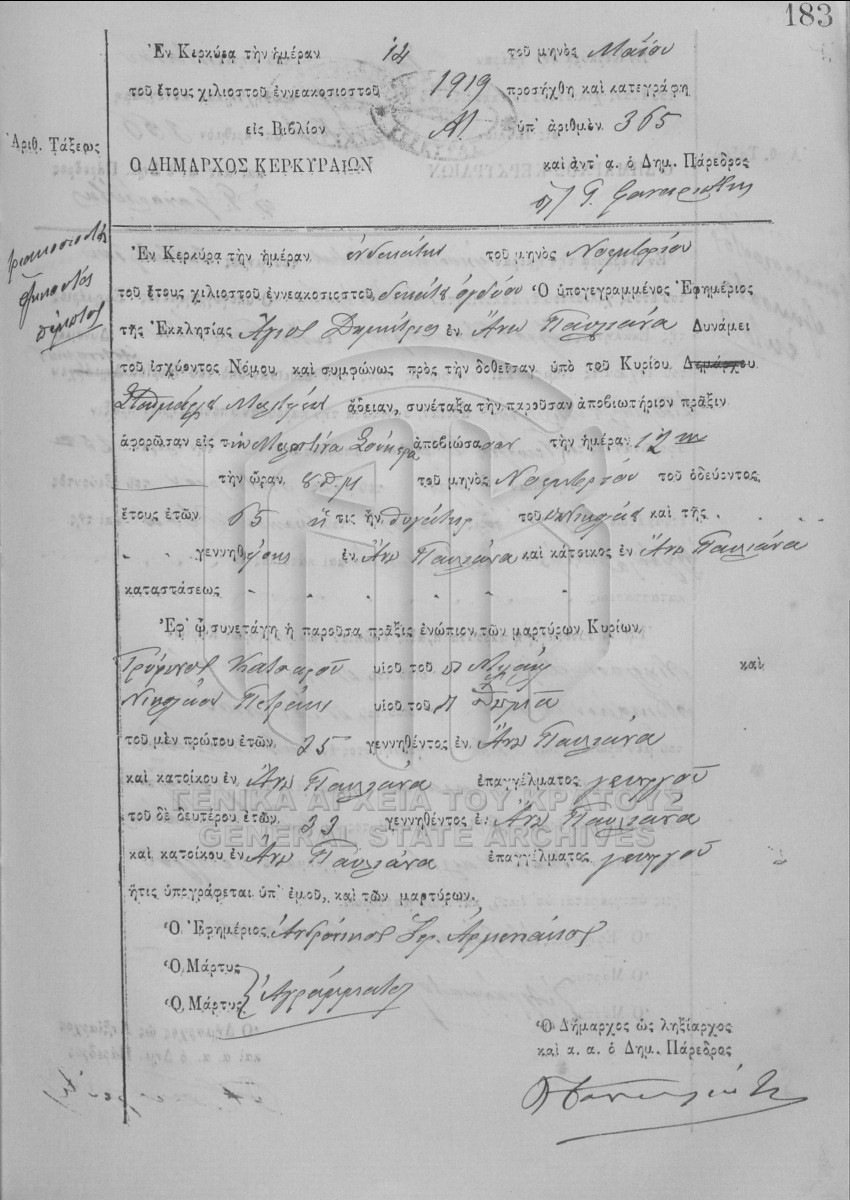 183
Ἐν Κερκύρᾳ τὴν ἡμέραν 14 τοῦ μηνὸς Μαΐου
τοῦ ἔτους χιλιοστοῦ ἐννεακοσιοστοῦ 1919 προσήχθη καὶ κατεγράφη
εἰς Βιβλίον Α/ ὑπ' ἀριθμὸν 365
Ἀριθ. Τάξεως
Ο ΔΗΜΑΡΧΟΣ ΚΕΡΚΥΡΑΙΩΝ καὶ ἀντ' α. ὁ Δημ. Πάρεδρος
τριακοσιοστὸς
ἑξηκοστὸς
πέμπτος
Ἐν Κερκύρᾳ τὴν ἡμέραν ἑνδεκάτην τοῦ μηνὸς Νοεμβρίου
τοῦ ἔτους χιλιοστοῦ ἐννεακοσιοστοῦ, δεκάτου ὀγδόου Ὁ ὑπογεγραμμένος Ἐφημέριος
τῆς Ἐκκλησίας Ἅγιος Δημήτριος ἐν Ἄνω Παυλιάνα Δυνάμει
τοῦ ἰσχύοντος Νόμου, καὶ συμφώνως πρὸς τὴν δοθεῖσαν ὑπὸ τοῦ Κυρίου Δημάρχου
ἄδειαν, συνέταξα τὴν παροῦσαν ἀποβιωτήριον πρᾶξιν
ἀφορῶσαν εἰς τὴν ἀποβιώσασαν τὴν ἡμέραν 12
τὴν ὥραν 8 π.μ τοῦ μηνὸς Νοεμβρίου τοῦ ὁδεύοντος
ἔτους ἐτῶν 65 ἥτις ἦν θυγάτηρ τοῦ Νικολάου καὶ τῆς
γεννηθείσης ἐν Ἄνω Παυλιάνα καὶ κάτοικος ἐν Ἄνω Παυλιάνα
καταστάσεως
Ἐφ' ᾧ συνετάγη ἡ παροῦσα πρᾶξις ἐνώπιον τῶν μαρτύρων Κυρίων
Κατσαροῦ υἱοῦ τοῦ καὶ
Νικολάου Πετράκη υἱοῦ τοῦ
τοῦ μὲν πρώτου ἐτῶν 25 γεννηθέντος ἐν Ἄνω Παυλιάνα
καὶ κατοίκου ἐν Ἄνω Παυλιάνα ἐπαγγέλματος γεωργοῦ
ΓΕΝΙΚΑ ΑΡΧΕΙΑ ΤΟΥ ΚΡΑΤΟΥΣ
τοῦ δὲ δευτέρου ἐτῶν 22 γεννηθέντος ἐν Ἄνω Παυλιάνα
GENERAL STATE ARCHIVES
καὶ κατοίκου ἐν Ἄνω Παυλιάνα ἐπαγγέλματος γεωργοῦ
ἥτις ὑπογράφεται ὑπ' ἐμοῦ, καὶ τῶν μαρτύρων,
Ὁ Ἐφημέριος Ἀνδρόνικος
Ὁ Μάρτυς
Ὁ Μάρτυς Ἀγράμματοι
Ὁ Δήμαρχος ὡς ληξίαρχος
καὶ α. α. ὁ Δημ. Πάρεδρος